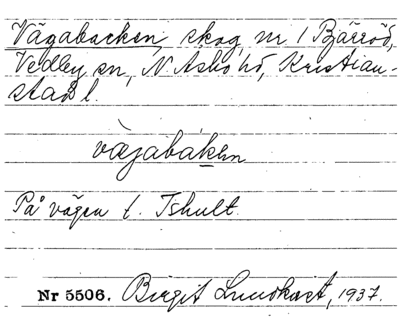 Vägabacken, skog, nr 1 Bjärröd,
Vedby sn, N Åsbo hd, Kristian-
stads l.
vägabakən
På vägen t. Ishult
Nr 5506. Birgit Lundkvist, 1937.